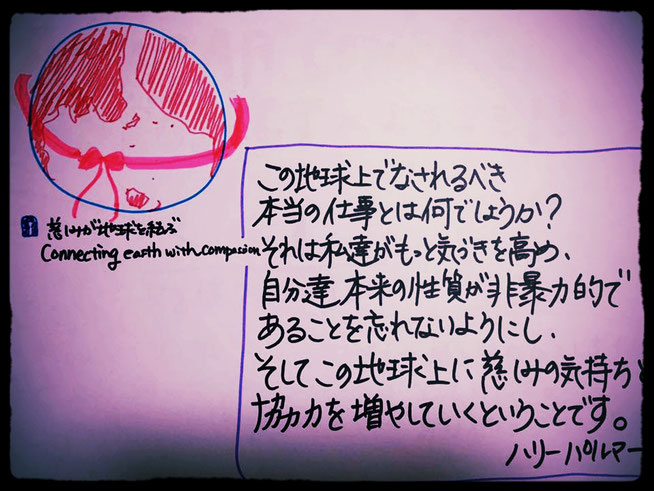 慈しみが地球を結ぶ
Connecting earth with compasion
この地球上でなされるべき
本当の仕事とは何でしょうか?
それは私達がもっと気づきを高め、
自分達本来の性質が非暴力的で
あることを忘れないようにし、
そしてこの地球上に慈しみの気持ちと
協力を増やしていくということです。
ハリーパルマー